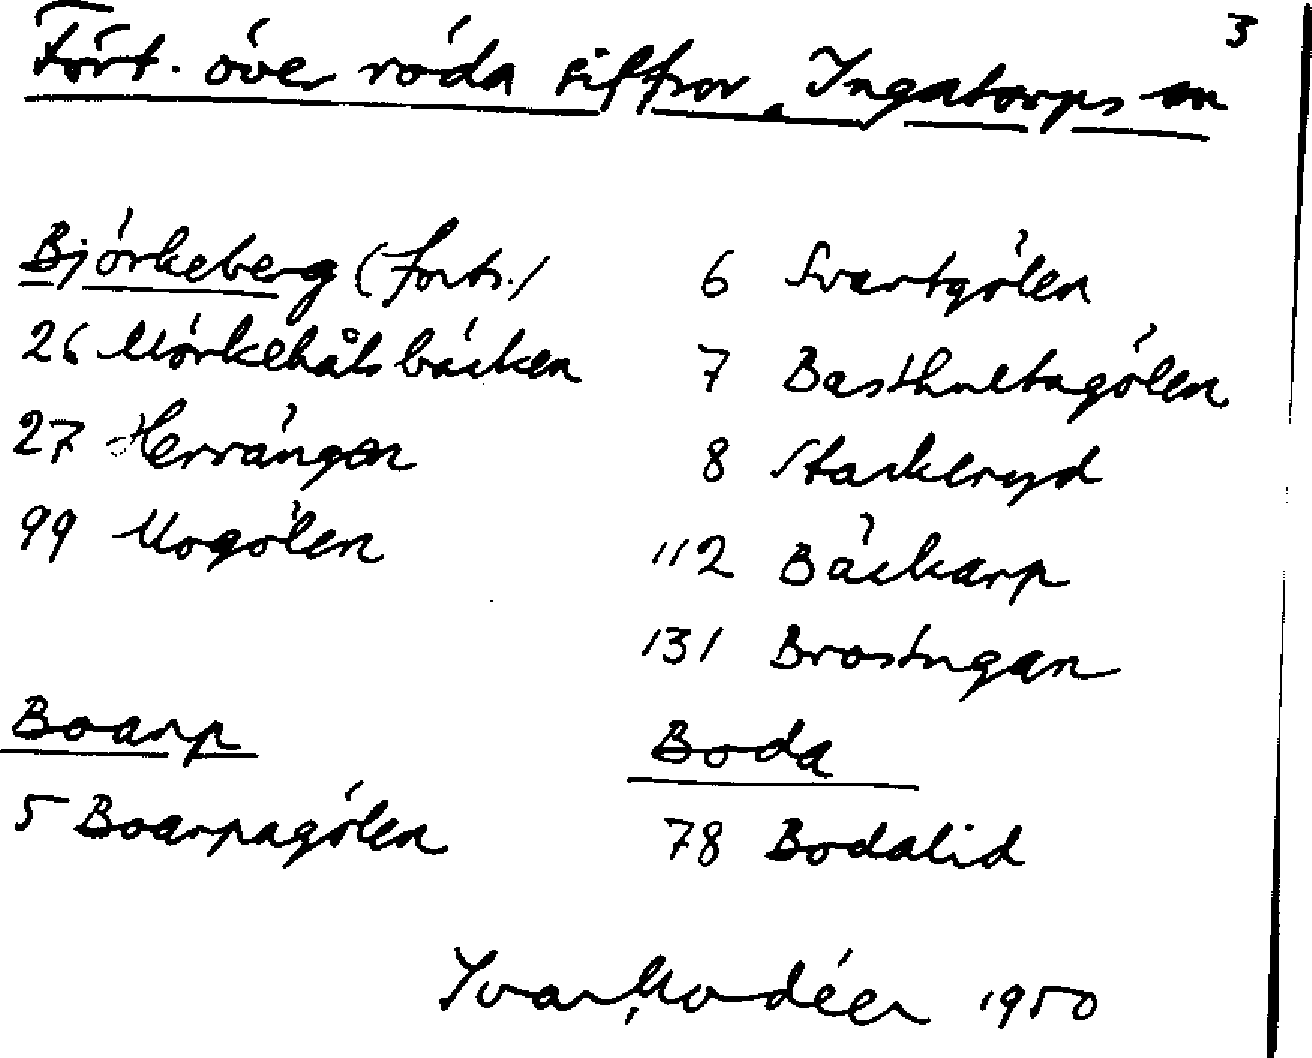 3
Fört. över röda siffror, Ingatorps sn
Björkeberg (forts.)
26 Mörkehålsbäcken
27 Herrängen
99 Mogölen
Boarp
5 Boarpagölen
6 Svartgölen
7 Basthultagölen
8 Stackeryd
112 Bäckarp
131 Brostugan
Boda
78 Bodalid
Ivar Modéer 1950